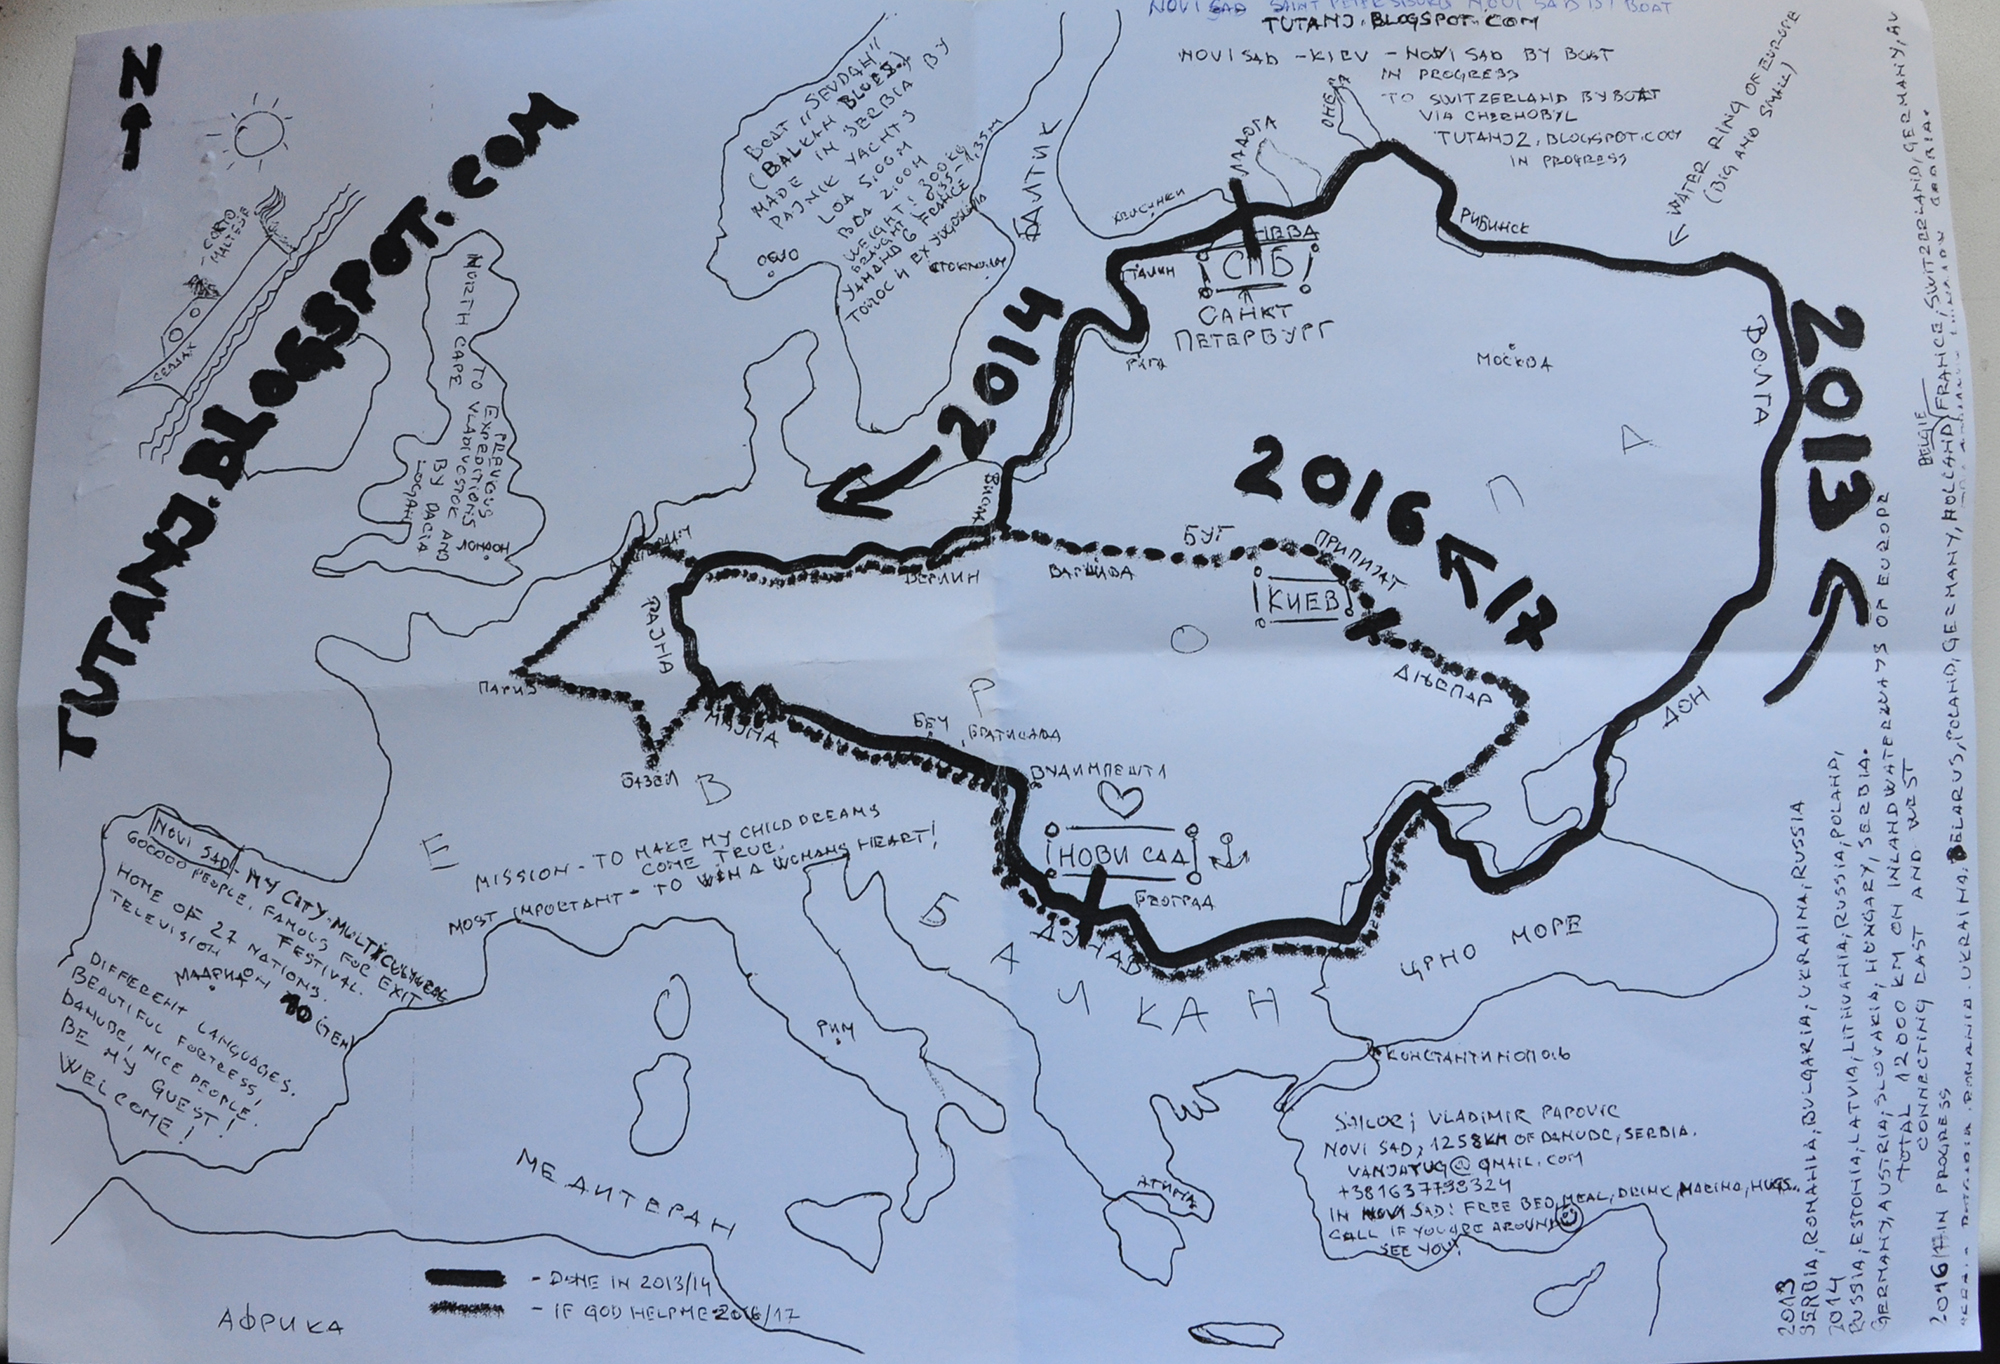 NOVI SAD SAINT PETERSBURG NOVI SAD BY BOAT
TUTANJ.BLOGSPOT.COM
NOVI SAD - KIEV - NOVI SAD BY BOAT
IN PROGRESS
TO SWITZERLAND BY BOAT
VIA CHERNOBYL
TUTANJ2.BLOGSPOT.COM
IN PROGRESS
WATER RING OF EUROPE
(BIG AND SMALL)
N
TUTANJ.BLOGSPOT.COM
CORTO
MALTESE
СЕВДАХ
NORTH CAPE
TO VLADIVOSTOK
BY DACIA
LOGAN
PREVIOUS
EXPEDITIONS
AND
ЛОНДОН
BOAT "SEVDAH"
(BALKAN BLUES)
MADE IN SERBIA BY
PAJNIK YACHTS
LOA 5,00M
BOA 2,00M
WEIGHT: 300KG
DRAUGHT 0,35-1,35M
YAMAHA 6 FRANCE
TOHOC 4 EX YUGOSLAVIA
ОСЛО
СТОКХОЛМ
БАЛТИК
ХЕЛСИНКИ
ЛАДОГА
ОНЕГА
НЕВА
СПБ
САНКТ
ПЕТЕРБУРГ
ТАЛИН
РИГА
РИБИНСК
МОСКВА
ВОЛГА
2013
2014
2016
17
ВИСЛА
БЕРЛИН
ВАРШАВА
БУГ
ПРИПЈАТ
КИЕВ
ДЊЕПАР
ДОН
РАЈНА
ПАРИЗ
БАЗЕЛ
МАЈНА
БЕЧ
БРАТИСЛАВА
БУДИМПЕШТА
НОВИ САД
БЕОГРАД
ДУНАВ
Е В Р О П А
БАЛКАН
ЦРНО МОРЕ
КОНСТАНТИНОПОЉ
АТИНА
РИМ
МАДРИД
МЕДИТЕРАН
АФРИКА
MISSION - TO MAKE MY CHILD DREAMS
COME TRUE.
MOST IMPORTANT - TO WIN A WOMANS HEART!
NOVI SAD - MY CITY - MULTICULTURAL
600000 PEOPLE, FAMOUS FOR EXIT
FESTIVAL.
HOME OF 27 NATIONS.
TELEVISION
10 (TEN)
DIFFERENT LANGUAGES.
BEAUTIFUL FORTRESS,
DANUBE, NICE PEOPLE.
BE MY GUEST!
WELCOME!
SAILOR; VLADIMIR PAPOVIC
NOVI SAD, 1258KM OF DANUBE, SERBIA.
VANJATUG@GMAIL.COM
+381637798324
IN NOVI SAD: FREE BED, MEAL, DRINK, MARINA, HUGS.
CALL IF YOU ARE AROUND
SEE YOU!
- DONE IN 2013/14
- IF GOD HELP ME 2016/17
2013
SERBIA, ROMANIA, BULGARIA, UKRAINA, RUSSIA
2014
RUSSIA, ESTONIA, LATVIA, LITHUANIA, RUSSIA, POLAND,
GERMANY, AUSTRIA, SLOVAKIA, HUNGARY, SERBIA.
TOTAL 12000 KM ON INLAND WATERWAYS OF EUROPE
CONNECTING EAST AND WEST
2016/17 IN PROGRESS
BELGIE
UKRAINA, BELARUS, POLAND, GERMANY, HOLLAND, FRANCE, SWITZERLAND, GERMANY, AU